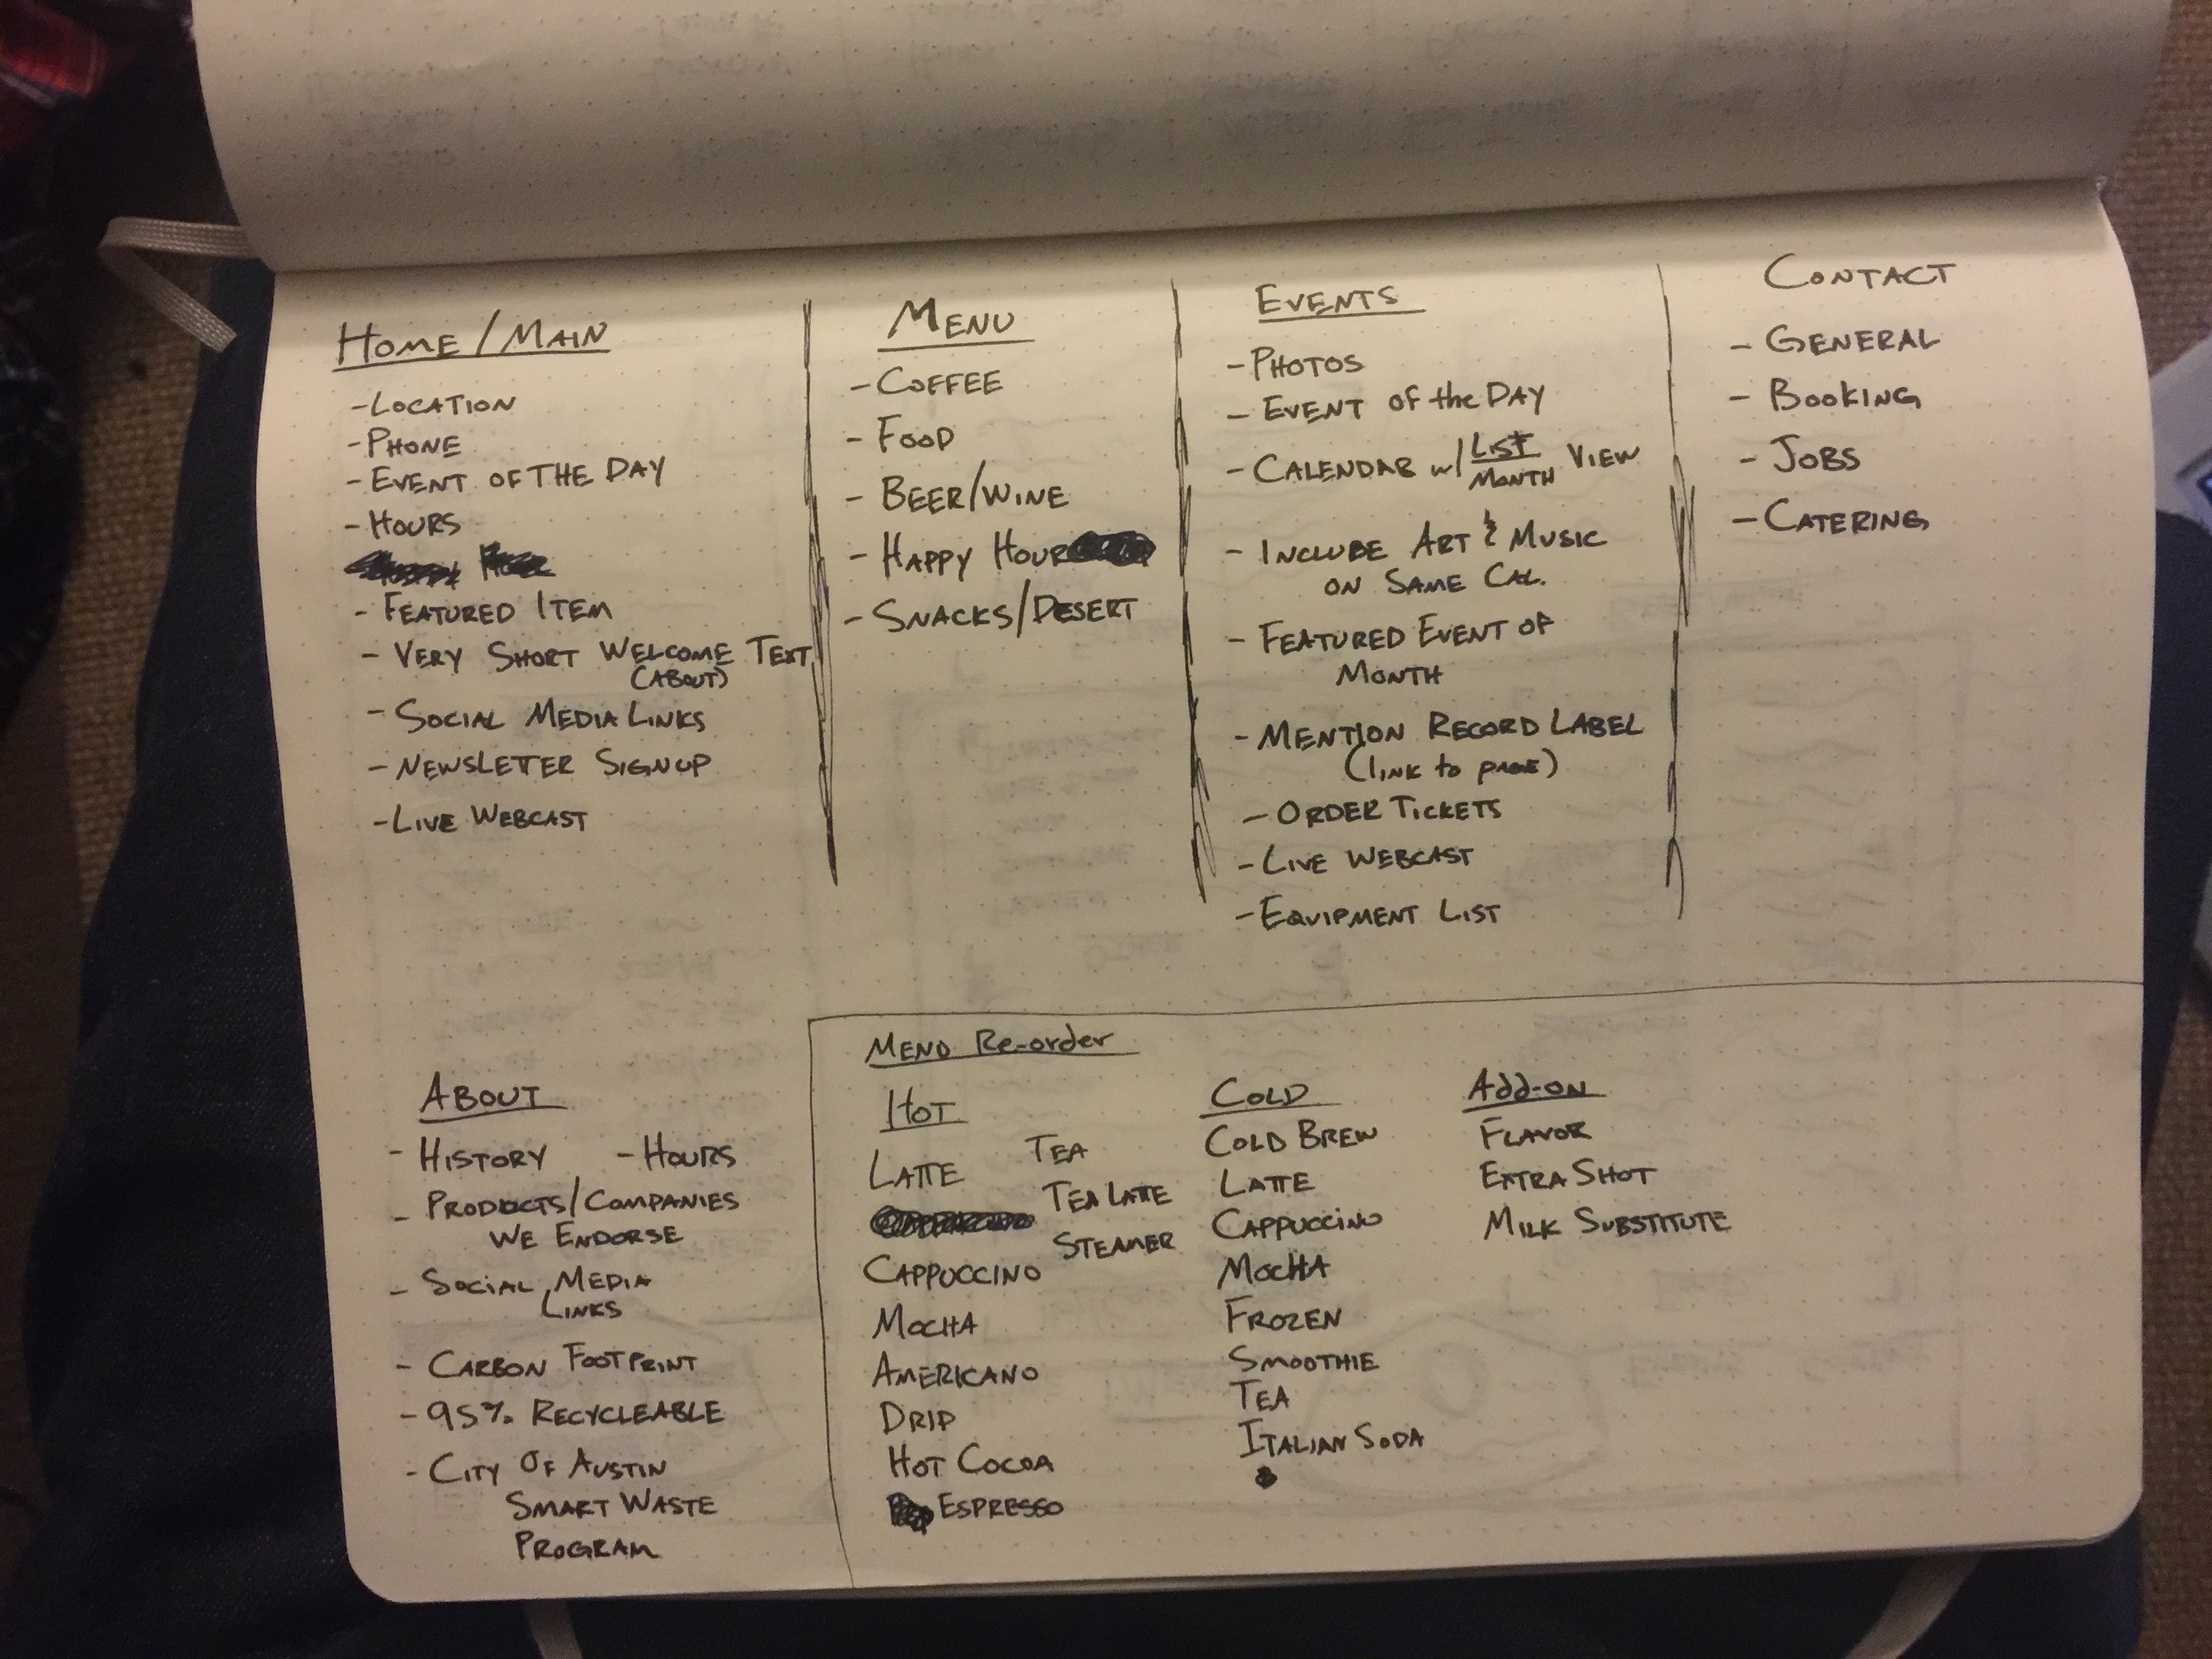 HOME/MAIN
-LOCATION
-PHONE
-EVENT OF THE DAY
-HOURS
-FEATURED ITEM
-VERY SHORT WELCOME TEXT
(ABOUT)
-SOCIAL MEDIA LINKS
-NEWSLETTER SIGNUP
-LIVE WEBCAST
MENU
-COFFEE
-FOOD
-BEER/WINE
-HAPPY HOUR
-SNACKS/DESERT
EVENTS
-PHOTOS
-EVENT OF the DAY
-CALENDAR w/ LIST VIEW
MONTH
-INCLUDE ART & MUSIC
ON SAME CAL.
-FEATURED EVENT OF
MONTH
-MENTION RECORD LABEL
(link to page)
-ORDER TICKETS
-LIVE WEBCAST
-EQUIPMENT LIST
CONTACT
-GENERAL
-BOOKING
-JOBS
-CATERING
ABOUT
-HISTORY -HOURS
-PRODUCTS/COMPANIES
WE ENDORSE
-SOCIAL MEDIA
LINKS
-CARBON FOOTPRINT
-95% RECYCLEABLE
-CITY OF AUSTIN
SMART WASTE
PROGRAM
MENU Re-order
HOT
LATTE
CAPPUCCINO
MOCHA
AMERICANO
DRIP
HOT COCOA
ESPRESSO
TEA
TEA LATTE
STEAMER
COLD
COLD BREW
LATTE
CAPPUCCINO
MOCHA
FROZEN
SMOOTHIE
TEA
ITALIAN SODA
Add-on
FLAVOR
EXTRA SHOT
MILK SUBSTITUTE